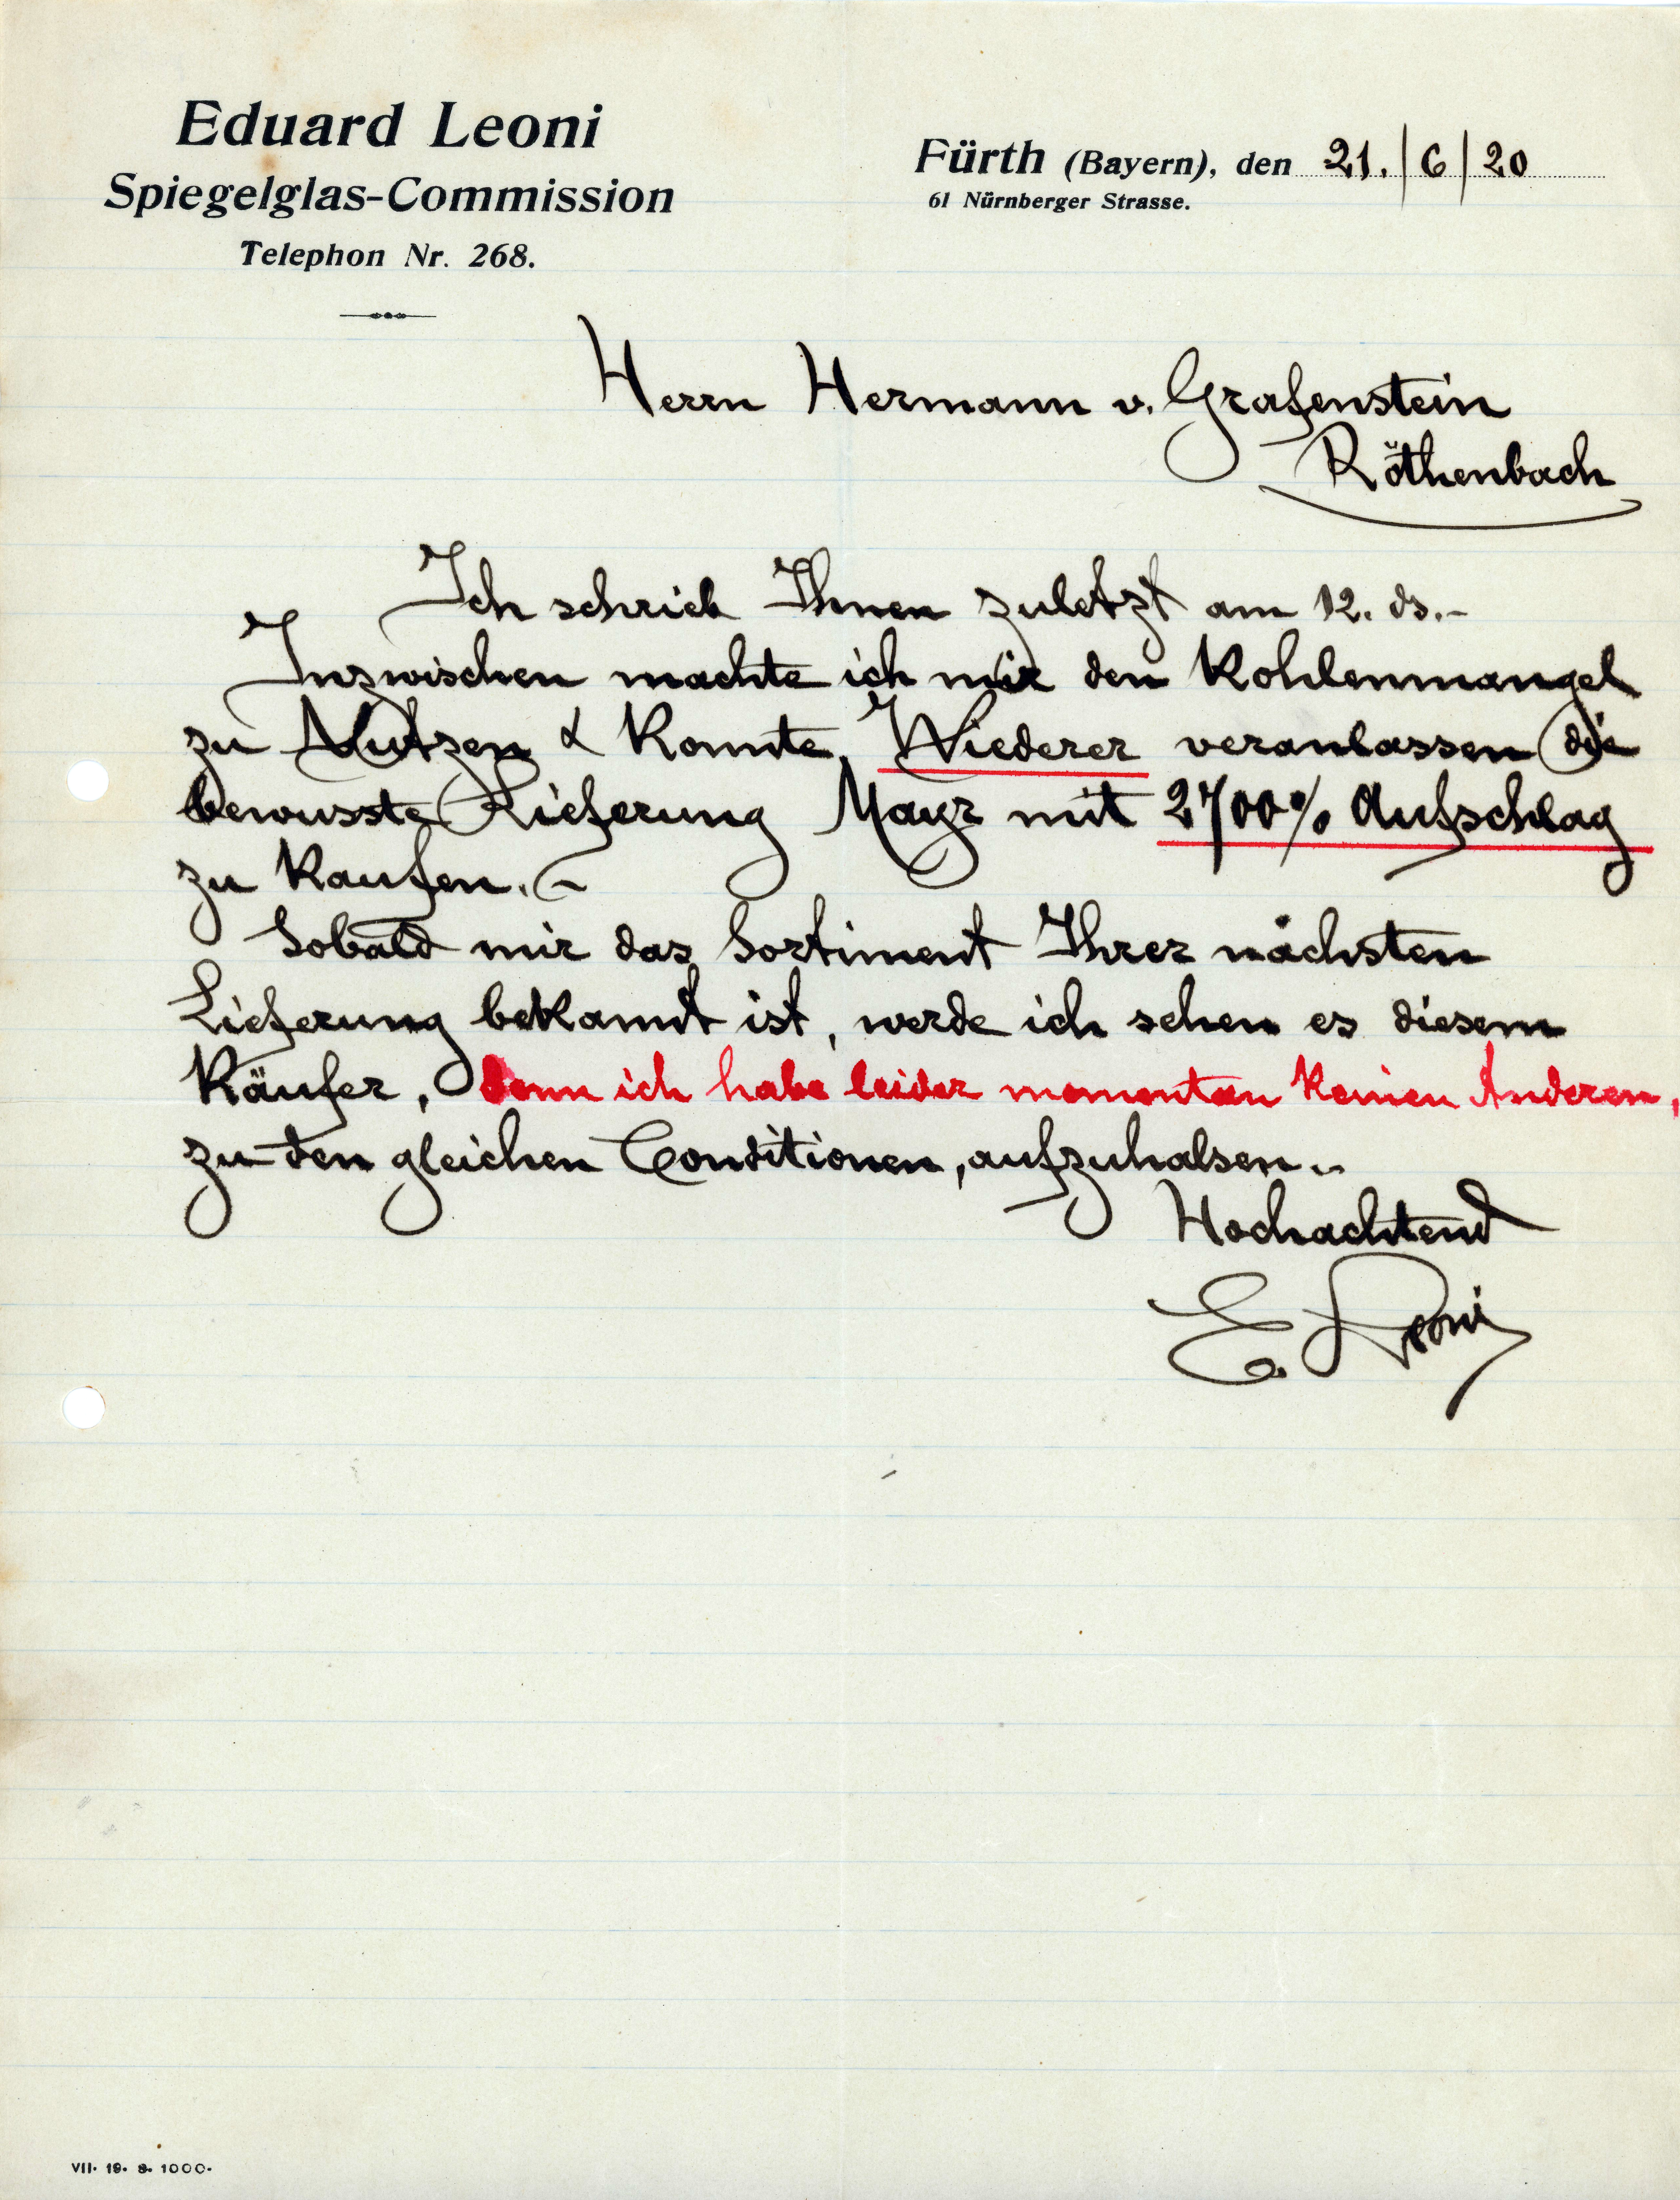 Eduard Leoni
Spiegelglas-Commission
Telephon Nr. 268.
Fürth (Bayern), den 21./6/20
61 Nürnberger Strasse.
Herrn Hermann v. Grafenstein
Röthenbach
Ich schrieb Ihnen zuletzt am 12. ds.-
Inzwischen machte ich mir den Kohlenmangel
zu Nutzen & konnte Wiederer veranlassen die
bewusste Lieferung Mayr mit 2700% Aufschlag
zu kaufen.-
Sobald mir das Sortiment Ihrer nächsten
Lieferung bekannt ist, werde ich sehen es diesem
Käufer, denn ich habe leider momentan keinen Anderen,
zu den gleichen Conditionen, aufzuhalsen.-
Hochachtend
E. Leoni
VII. 19. 9. 1000.